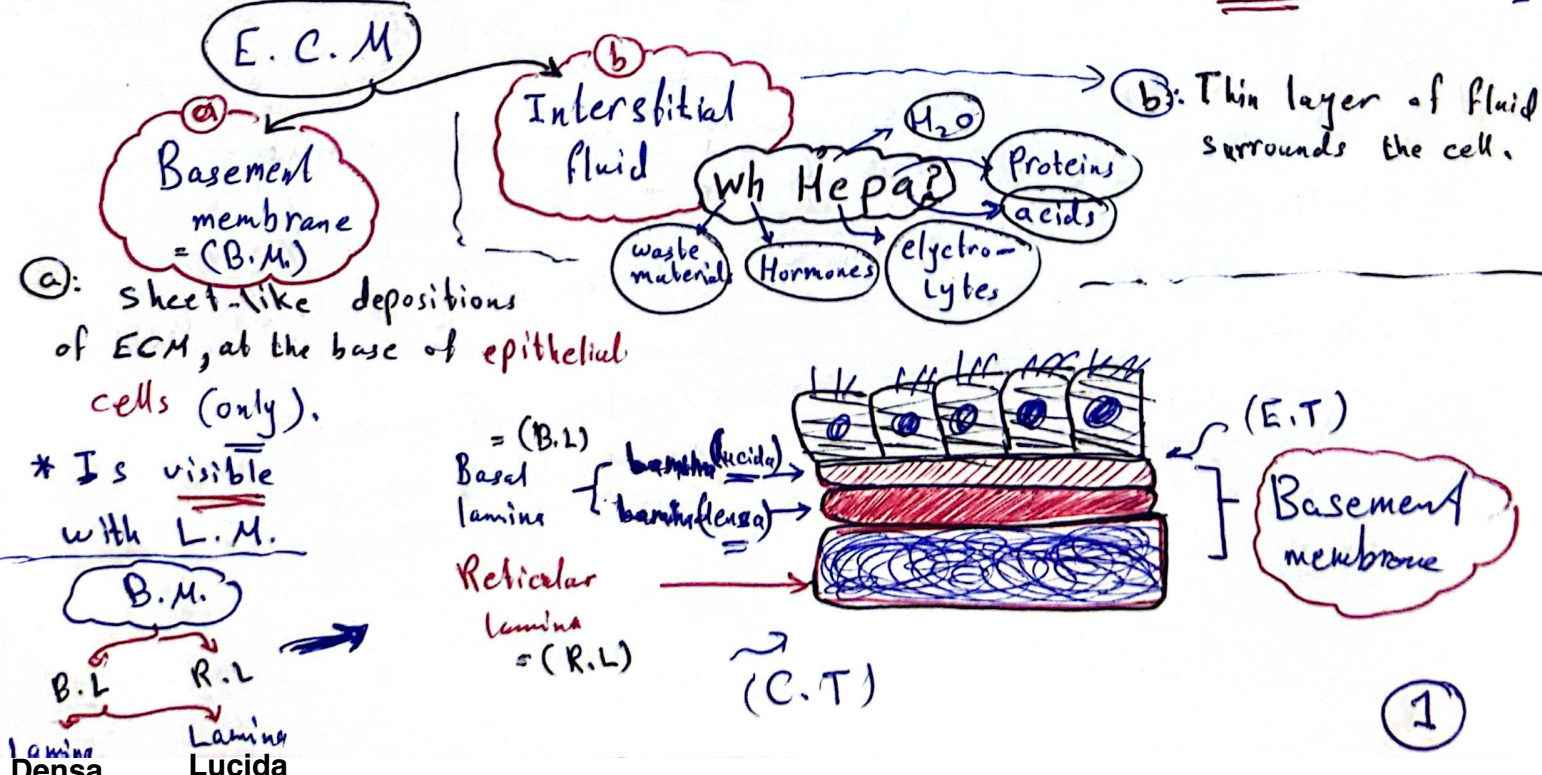 E.C.M
a
Basement
membrane
= (B.M.)
b
Interstitial
fluid
Wh Hepa?
H2O
Proteins
acids
elyctro-
lytes
Hormones
waste
materials
b: Thin layer of fluid
surrounds the cell.
a:
sheet-like depositions
of ECM, at the base of epithelial
cells (only).
* Is visible
with L.M.
B.M.
B.L
R.L
Lamina
Densa
Lamina
Lucida
= (B.L)
Basal
lamina
(lucida)
(densa)
Reticular
lamina
= (R.L)
(C.T)
(E.T)
Basement
membrane
1